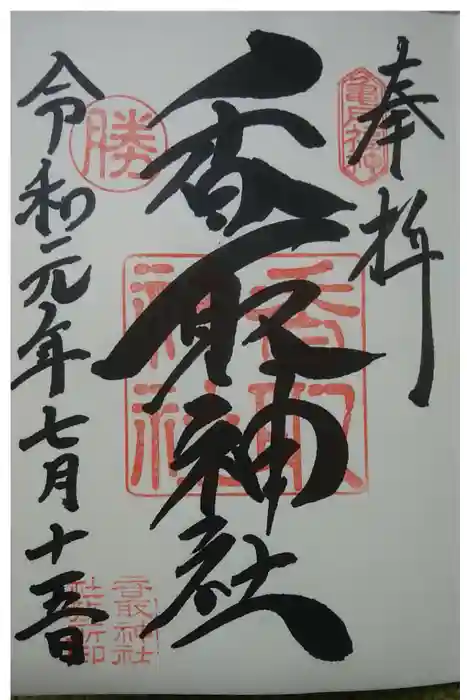 奉拝
亀戸
香取神社
香取神社
勝
令和元年七月十五日
香取神社
社務所印